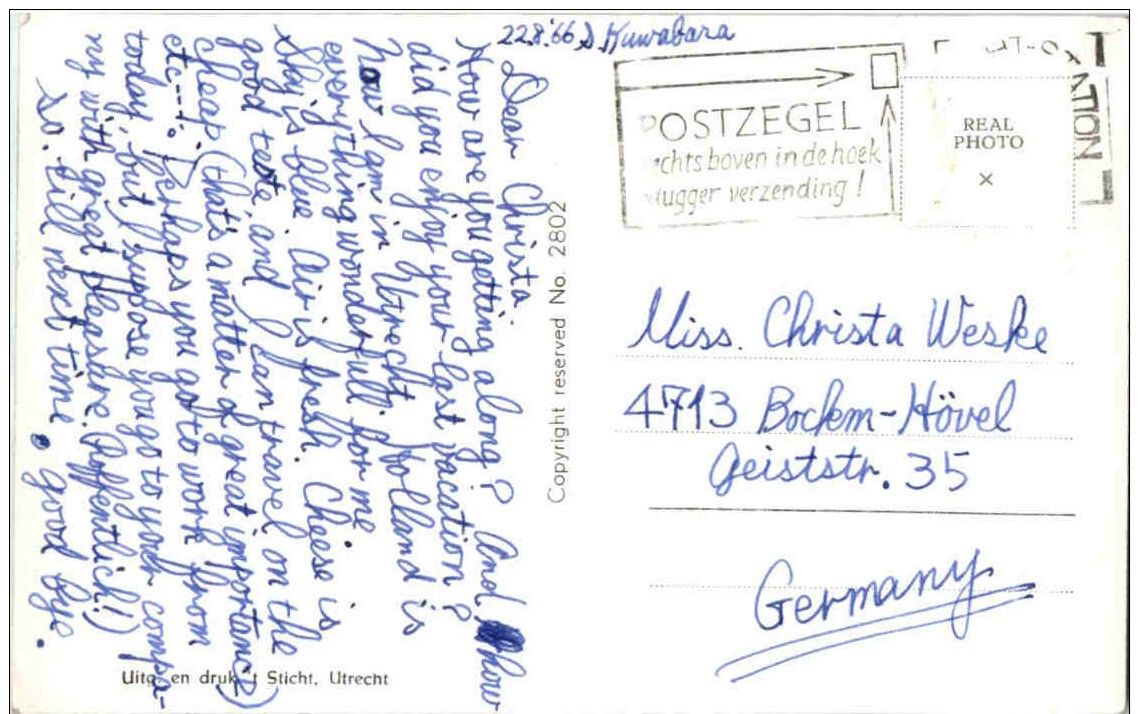 22.8.'66 S. Kuwabara
Dear Christa.
How are you getting along? And how
did you enjoy your last vacation?
Now I am in Utrecht, Holland is
everything wonderfull for me
Sky is blue. Air is fresh. Cheese is
good teste, and I can travel on the
cheap (that's a matter of great importance)
etc----. Perhaps you go to work from
today, but I suppose you go to your compa-
ny with great pleasure. (Hoffentlich!)
So. till next time. good bye.
Uitg. en druk 't Sticht, Utrecht
Copyright reserved No. 2802
POSTZEGEL
chts boven in de hoek
ugger verzending!
REAL
PHOTO
x
ATION
Miss. Christa Weske
4713 Bockem-Hövel
Geiststr. 35
Germany